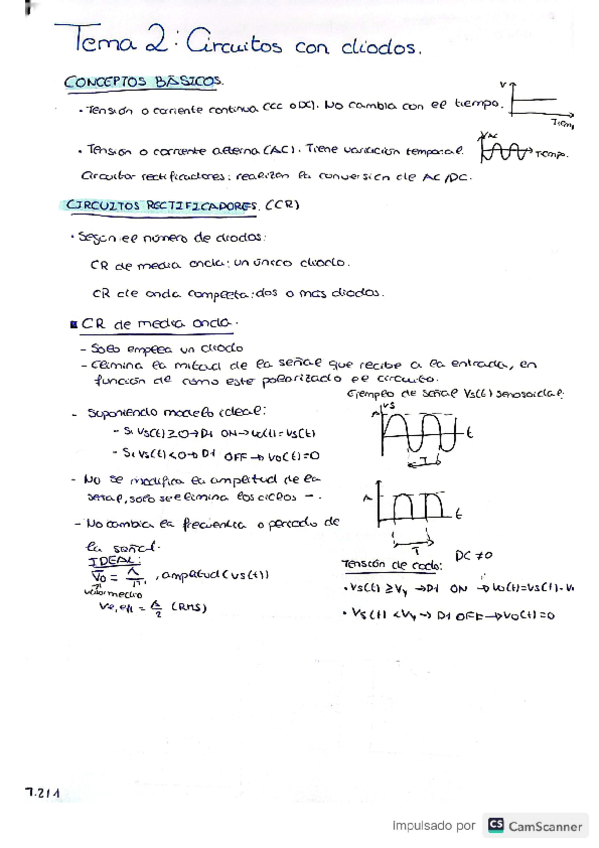 Tema 2: Circuitos con diodos.
CONCEPTOS BÁSICOS.
· Tensión o corriente continua (CC o DC). No cambia con el tiempo.
V
Tiem,
· Tensión o corriente alterna (AC). Tiene variación temporal.
AC
Tiempo.
Circuitos rectificadores: realizan la conversión de AC/DC.
CIRCUITOS RECTIFICADORES. (CR)
· Según el número de diodos:
CR de media onda: un único diodo.
CR de onda completa: dos o más diodos.
CR de media onda.
- Solo emplea un diodo
- Elimina la mitad de la señal que recibe a la entrada, en
función de como este polarizado el circuito.
Ejemplo de señal Vs(t) senosoidal:
- Suponiendo modelo ideal:
- Si Vs(t) ≥ 0 → D1 ON → Vo(t) = Vs(t)
- Si Vs(t) < 0 → D1 OFF → Vo(t) = 0
A
Vs
t
T
- No se modifica la amplitud de la
señal, solo se elimina los ciclos -.
A
t
T
- No cambia la frecuencia o periodo de
la señal.
DC ≠ 0
IDEAL:
Vo = A/π, amplitud (Vs(t))
valor medio
Vo,eff = A/2 (RMS)
Tensión de codo:
· Vs(t) ≥ Vγ → D1 ON → Vo(t) = Vs(t) - V
· Vs(t) < Vγ → D1 OFF → Vo(t) = 0
T.2/1
Impulsado por CS CamScanner